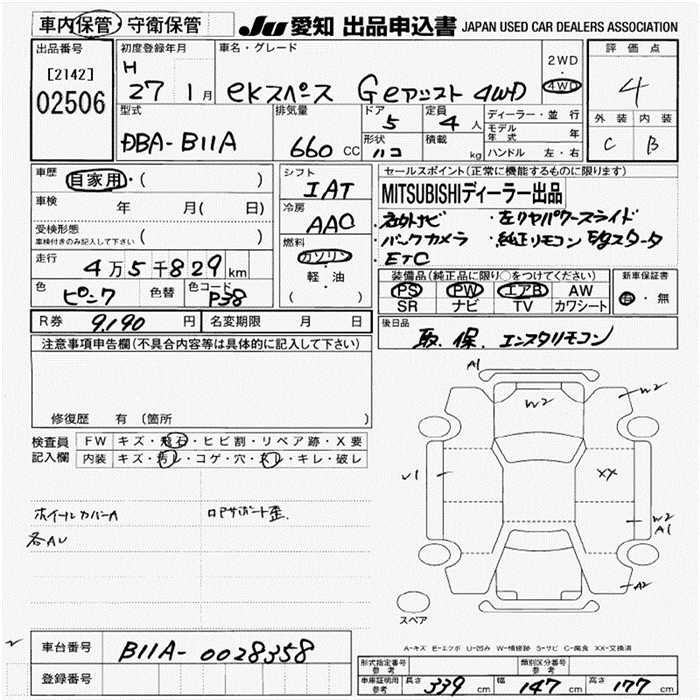 車内保管・守衛保管
JU 愛知 出品申込書 JAPAN USED CAR DEALERS ASSOCIATION
出品番号
[2142]
02506
初度登録年月
H
27 1月
車名・グレード
eKスペース Geアシスト 4WD
2WD
・
4WD
評価点
4
外装 内装
C B
型式
DBA-B11A
排気量
660 CC
ドア
5
形状
ハコ
定員
4 人
積載
kg
ディーラー・並行
モデル年式 年
ハンドル 左・右
車歴
自家用・( )
車検
年 月( 日)
受検形態
車検付きのみ記入して下さい ( )
走行
4万5千829km
色
ピンク
色替
色コード
P38
シフト
IAT
冷房
AAC
燃料
ガソリン
・
軽・油
( )
セールスポイント(正常に機能するものに限ります)
MITSUBISHIディーラー出品
・社外ナビ ・左リヤパワースライド
・バックカメラ ・純正リモコンEgスタータ
・ETC
装備品(純正品に限り○をつけてください)
PS PW エアB AW
SR ナビ TV カワシート
新車保証書
有・無
R券 9,190 円
名変期限 月 日
後日品
取、保、エンスタリモコン
注意事項申告欄(不具合内容等は具体的に記入して下さい)
修復歴 有 (箇所 )
検査員記入欄
FW キズ・飛石・ヒビ割・リペア跡・X要
内装 キズ・汚レ・コゲ・穴・スレ・キレ・破レ
ホイールカバーA
各AU
ロアサポート歪
A1
W2
W2
U1
XX
W2
A1
A2
スペア
A-キズ E-エクボ U-凹み W-補修跡 S-サビ C-腐食 XX-交換済
車台番号 B11A-0028358
登録番号
形式指定番号 参考
類別区分番号 参考
車庫証明用 参考
長さ 339 cm 幅 147 cm 高さ 177 cm